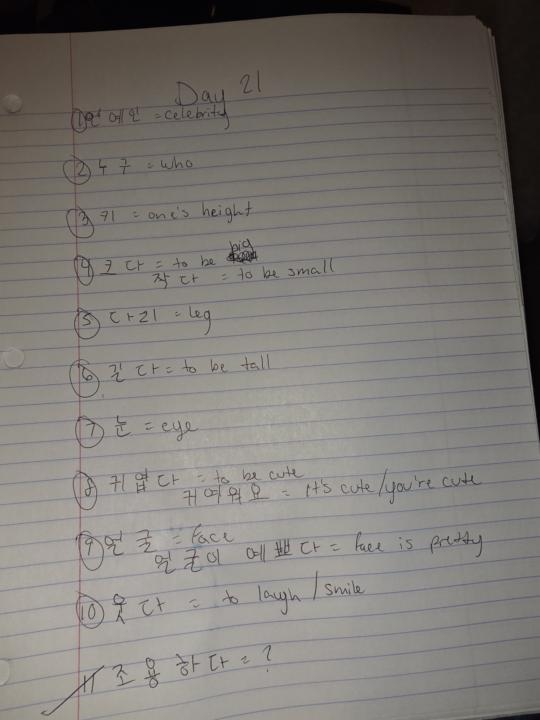 Day 21
① 연예인 = celebrity
② 누구 = who
③ 키 = one's height
④ 크다 = to be big
작다 = to be small
⑤ 다리 = leg
⑥ 길다 = to be tall
⑦ 눈 = eye
⑧ 귀엽다 = to be cute
귀여워요 = it's cute/you're cute
⑨ 얼굴 = face
얼굴이 예쁘다 = face is pretty
⑩ 웃다 = to laugh/smile
11 조용하다 = ?